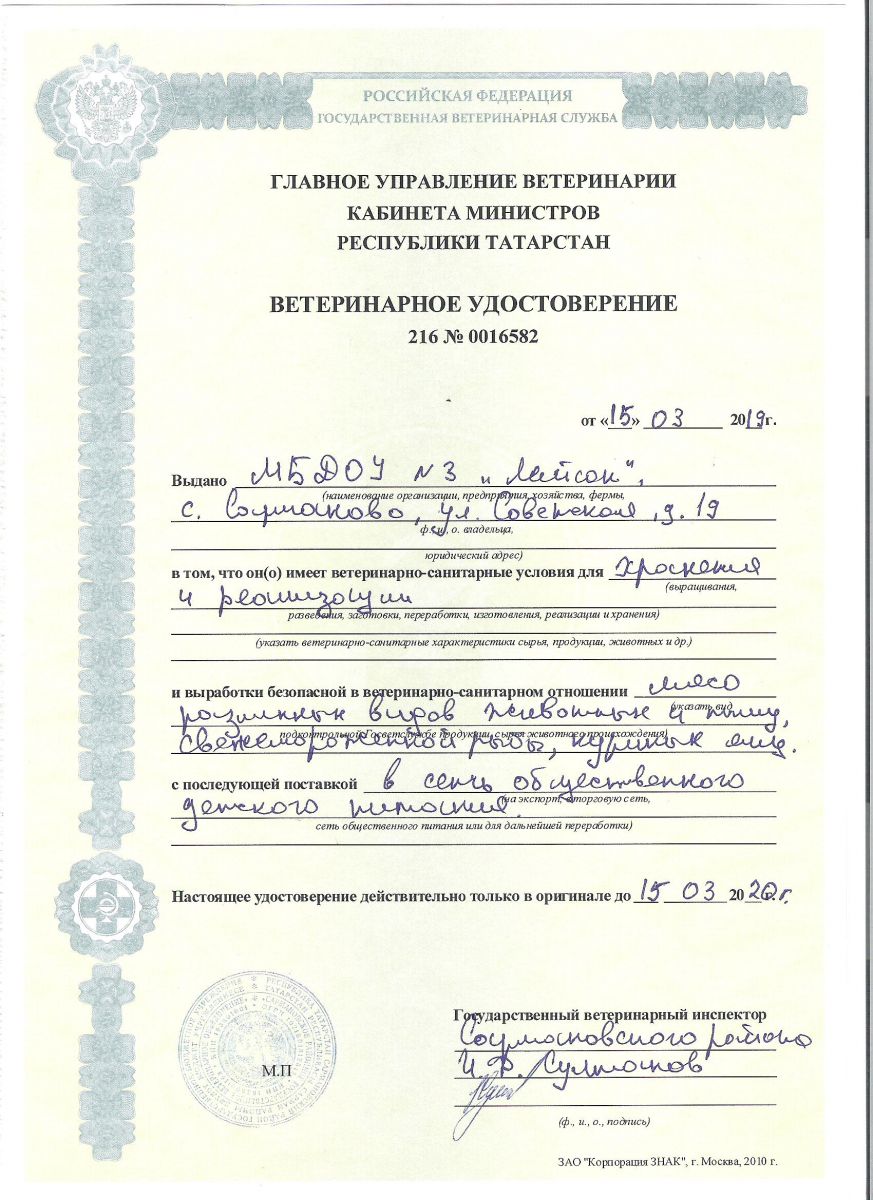 РОССИЙСКАЯ ФЕДЕРАЦИЯ
ГОСУДАРСТВЕННАЯ ВЕТЕРИНАРНАЯ СЛУЖБА
ГЛАВНОЕ УПРАВЛЕНИЕ ВЕТЕРИНАРИИ
КАБИНЕТА МИНИСТРОВ
РЕСПУБЛИКИ ТАТАРСТАН
ВЕТЕРИНАРНОЕ УДОСТОВЕРЕНИЕ
216 № 0016582
от «15» 03 2019г.
Выдано МБДОУ №3 "Ляйсан",
(наименование организации, предприятия, хозяйства, фермы,
с. Сарманово, ул. Советская, д. 19
ф., и., о. владельца,
юридический адрес)
в том, что он(о) имеет ветеринарно-санитарные условия для хранения
(выращивания,
и реализации
разведения, заготовки, переработки, изготовления, реализации и хранения)
(указать ветеринарно-санитарные характеристики сырья, продукции, животных и др.)
и выработки безопасной в ветеринарно-санитарном отношении мясо
(указать вид
различных видов животных и птиц,
подконтрольной Госветслужбе продукции, сырья животного происхождения)
свежемороженной рыбы, куриных яиц.
с последующей поставкой в сеть общественного
(на экспорт, в торговую сеть,
детского питания.
сеть общественного питания или для дальнейшей переработки)
Настоящее удостоверение действительно только в оригинале до 15 03 2020г.
Государственный ветеринарный инспектор
Сармановского района
И.Ф. Султанов
М.П
(ф., и., о., подпись)
ЗАО "Корпорация ЗНАК", г. Москва, 2010 г.